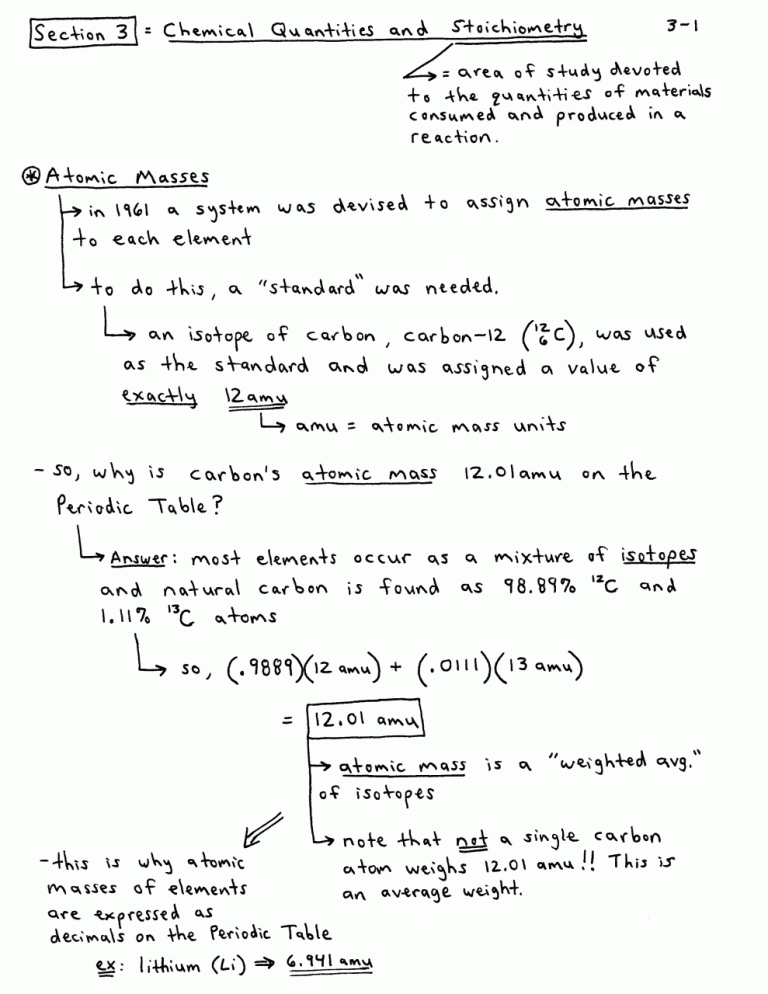 Section 3 = Chemical Quantities and Stoichiometry 3-1
↳ = area of study devoted
to the quantities of materials
consumed and produced in a
reaction.
⊛ Atomic Masses
↳ in 1961 a system was devised to assign atomic masses
to each element
↳ to do this, a "standard" was needed.
↳ an isotope of carbon, carbon-12 (¹²₆C), was used
as the standard and was assigned a value of
exactly 12 amu
↳ amu = atomic mass units
- so, why is carbon's atomic mass 12.01 amu on the
Periodic Table?
↳ Answer: most elements occur as a mixture of isotopes
and natural carbon is found as 98.89% ¹²C and
1.11% ¹³C atoms
↳ so, (.9889)(12 amu) + (.0111)(13 amu)
= 12.01 amu
→ atomic mass is a "weighted avg."
of isotopes
↳ note that not a single carbon
atom weighs 12.01 amu!! This is
an average weight.
- this is why atomic
masses of elements
are expressed as
decimals on the Periodic Table
ex: lithium (Li) ⇒ 6.941 amu